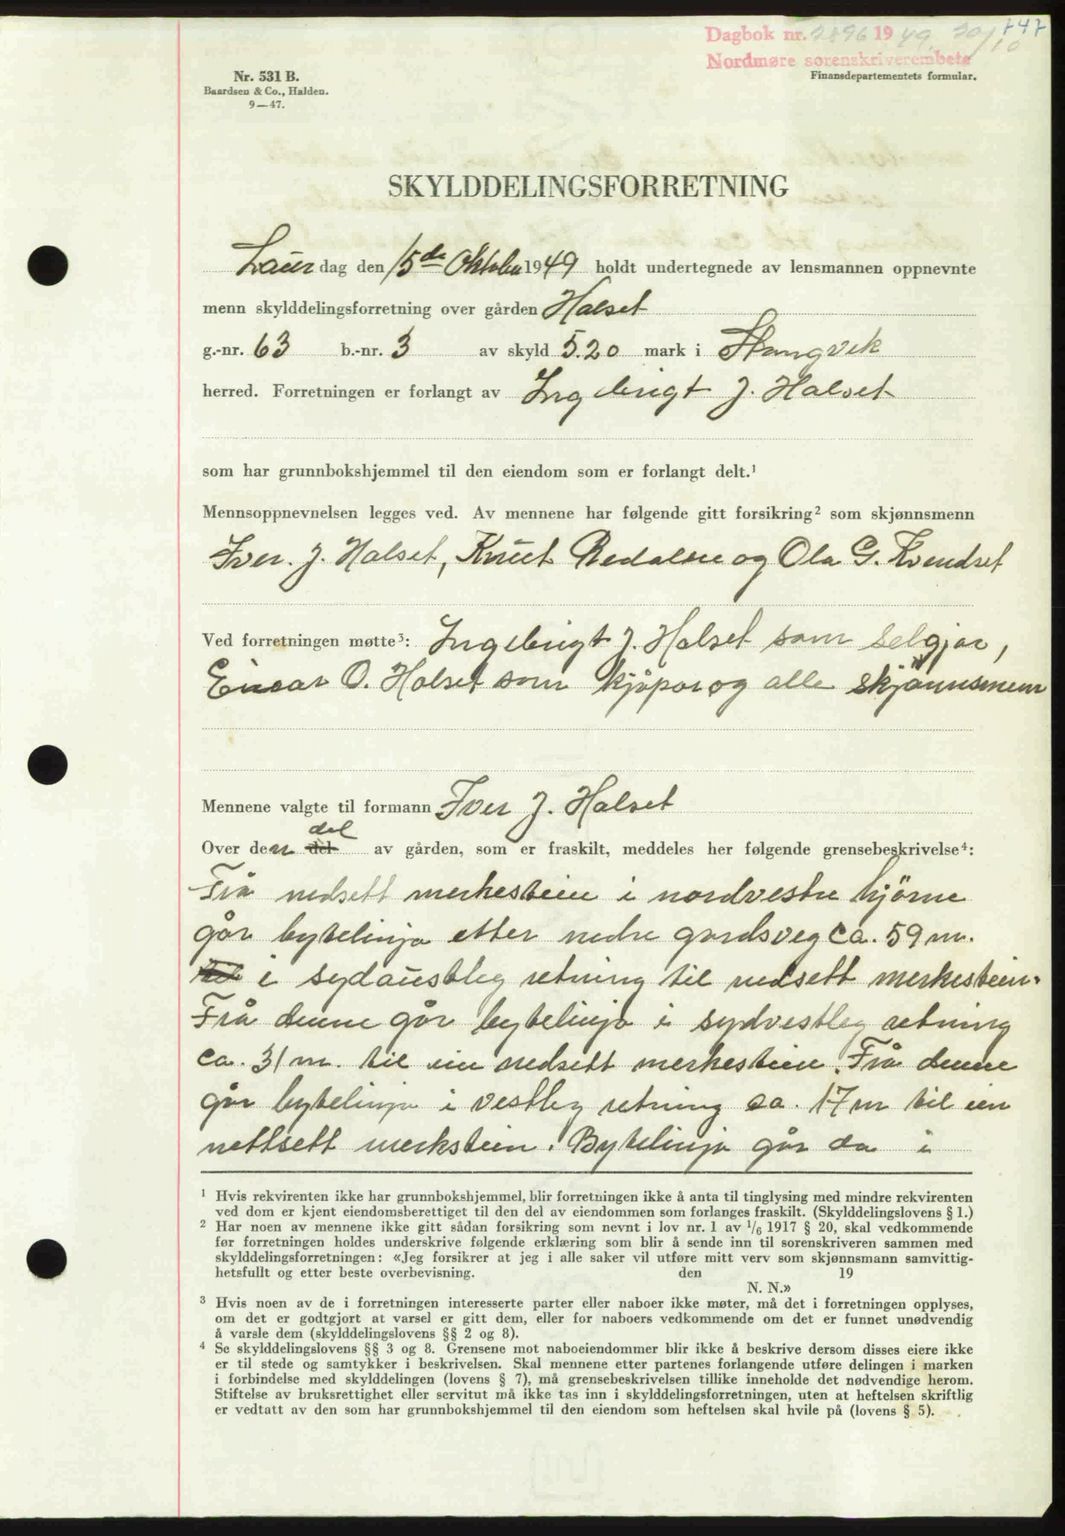 747
Dagbok nr. 2896 1949 20/10
Nordmøre sorenskriverembete
Nr. 531 B.
Baardsen & Co., Halden.
9—47.
Finansdepartementets formular.
SKYLDDELINGSFORRETNING
Laur dag den 15de Oktober 1949 holdt undertegnede av lensmannen oppnevnte
menn skylddelingsforretning over gården Halset
g.-nr. 63 b.-nr. 3 av skyld 5.20 mark i Stangvik
herred. Forretningen er forlangt av Ingebrigt J. Halset
som har grunnbokshjemmel til den eiendom som er forlangt delt.¹
Mennsoppnevnelsen legges ved. Av mennene har følgende gitt forsikring² som skjønnsmenn
Iver. J. Halset, Knut Redalen og Ola G. Kvendset
Ved forretningen møtte³: Ingebrigt J. Halset som selgjar,
Einar O. Halset som kjøpar og alle skjønnsmenn
Mennene valgte til formann Iver J. Halset
del
Over den del av gården, som er fraskilt, meddeles her følgende grensebeskrivelse⁴:
Frå nedsett merkestein i nordvestre hjörne
går bytelinja etter nedre gardsveg ca. 59 m.
til i sydaustleg retning til nedsett merkestein.
Frå denne går bytelinja i sydvestleg retning
ca. 31 m. til ein nedsett merkestein. Frå denne
går bytelinja i vestleg retning ca. 17 m til ein
nettsett merkstein. Bytelinja går da i
¹ Hvis rekvirenten ikke har grunnbokshjemmel, blir forretningen ikke å anta til tinglysing med mindre rekvirenten
ved dom er kjent eiendomsberettiget til den del av eiendommen som forlanges fraskilt. (Skylddelingslovens § 1.)
² Har noen av mennene ikke gitt sådan forsikring som nevnt i lov nr. 1 av 1/6 1917 § 20, skal vedkommende
før forretningen holdes underskrive følgende erklæring som blir å sende inn til sorenskriveren sammen med
skylddelingsforretningen: «Jeg forsikrer at jeg i alle saker vil utføre mitt verv som skjønnsmann samvittig-
hetsfullt og etter beste overbevisning. den 19
N. N.»
³ Hvis noen av de i forretningen interesserte parter eller naboer ikke møter, må det i forretningen opplyses,
om det er godtgjort at varsel er gitt dem, eller for naboers vedkommende om det er funnet unødvendig
å varsle dem (skylddelingslovens §§ 2 og 8).
⁴ Se skylddelingslovens §§ 3 og 8. Grensene mot naboeiendommer blir ikke å beskrive dersom disses eiere ikke
er til stede og samtykker i beskrivelsen. Skal mennene etter partenes forlangende utføre delingen i marken
i forbindelse med skylddelingen (lovens § 7), må grensebeskrivelsen tillike inneholde det nødvendige herom.
Stiftelse av bruksrettighet eller servitut må ikke tas inn i skylddelingsforretningen, uten at heftelsen skriftlig
er vedtatt av den som har grunnbokshjemmel til den eiendom som heftelsen skal hvile på (lovens § 5).